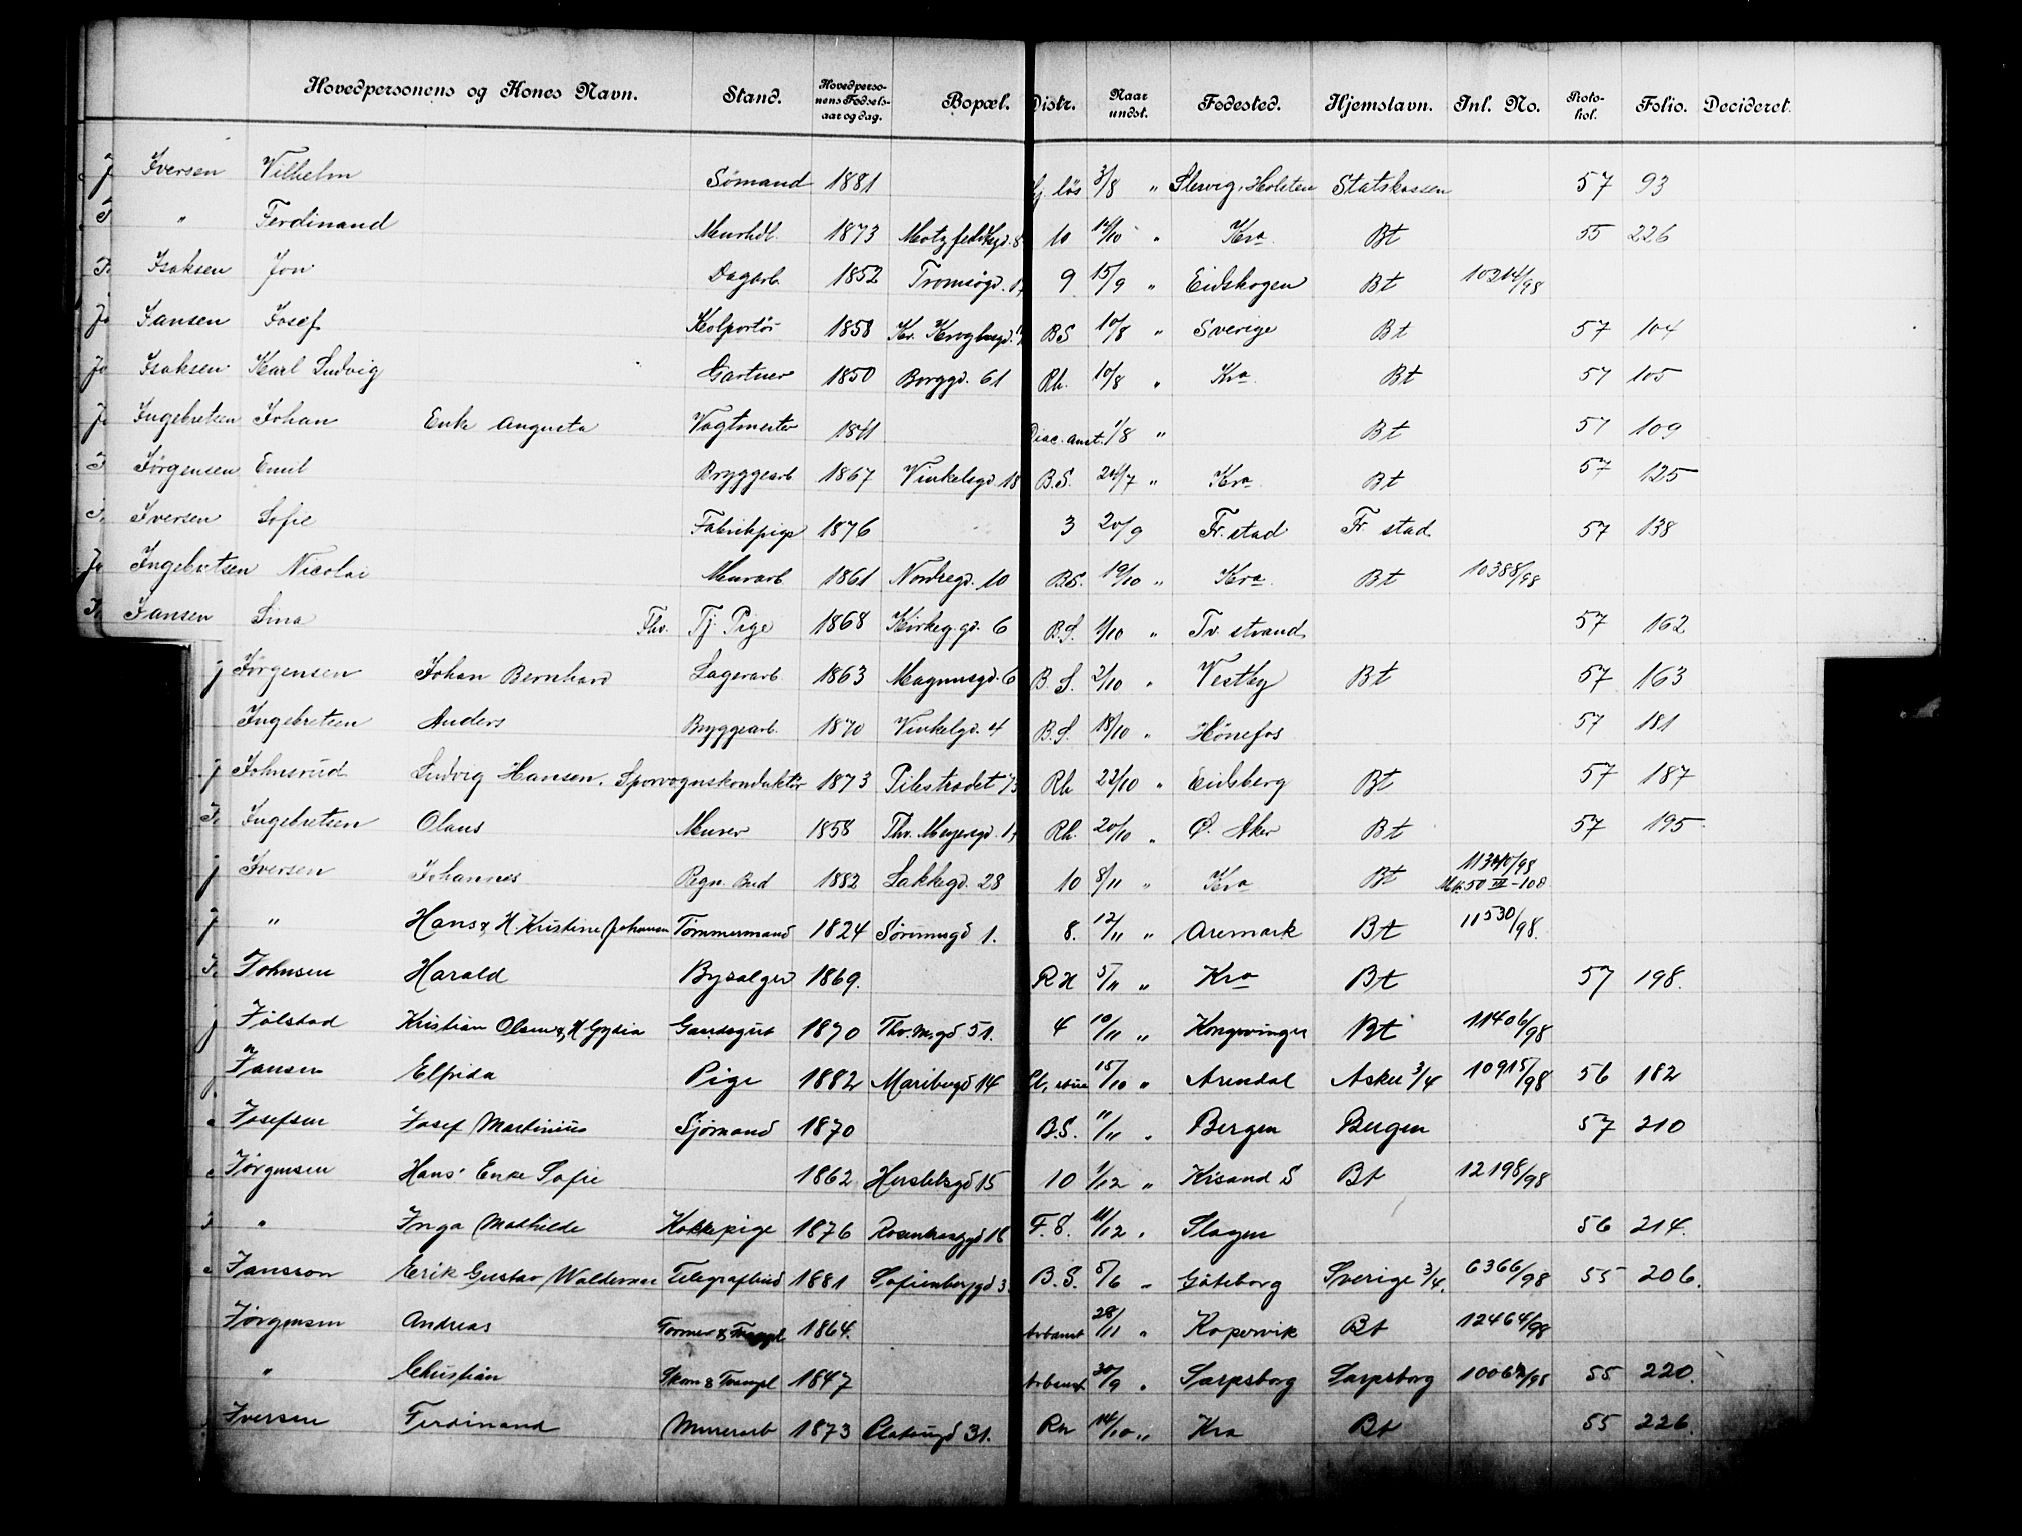 Hovedpersonens og Kones Navn. Stand. Hovedpersonens Fødselsaar og dag. Bopæl. Distr. Naar undst. Fødested. Hjemstavn. Inl. No. Protokol. Folio. Decideret.
Iversen Vilhelm Sømand 1881 løs 3/8 " Slesvig, Holsten Statskassen 57 93
" Ferdinand 1873 10 14/10 " Kra. Bt 55 226
Isaksen Jon Dagarb. 1852 Tromsøgd. 9 15/9 " Eidskogen Bt 10214/98
Jansen Josef Kolportør 1858 Kr. Kroghsgd. BS 10/8 " Sverige Bt 57 104
Isaksen Karl Ludvig Gartner 1850 Borggd. 61 Rh. 10/8 " Kra. Bt 57 105
Ingebretsen Johan Enke Augusta Vagtmester Diac. anst. 1/8 " Bt 57 109
Jørgensen Emil Bryggearb 1867 Vinkelsgd. 18 B.S. 24/7 " Kra. Bt 57 125
Iversen Sofie Fabrikpige 1876 3 20/9 Fr. stad Fr stad 57 138
Ingebretsen Nicolai Murarb 1861 Nordregd. 10 B.S. 19/10 " Kra. Bt 10388/98
Jansen Lina Thv. Tj. Pige 1868 Kirkeg. gd. 6 B.S. 1/10 " Tv. strand 57 162
Jørgensen Johan Bernhard Lagerarb. 1863 Magnusgd. 6 B.S. 2/10 " Vestby Bt 57 163
Ingebretsen Anders Bryggearb. 1870 Vinkelgd. 4 B.S. 18/10 " Hønefos 57 181
Johnsrud Ludvig Hansen. Sporvognskonduktør 1873 Pilestrædet 73 Rh 22/10 " Eidsberg Bt 57 187
Ingebretsen Olaus Murer 1858 Thv. Meyersgd. Rh. 20/10 " Ø. Aker Bt 57 195
Iversen Johannes Regn. Bud 1882 Lakkegd. 28 10 8/11 " Kra Bt
" Hans & H. Kristine Johansen Tømmermand 1824 1. 8. 12/11 " Aremark Bt 11530/98.
Johnsen Harald Bysælger 1869. RH 5/11 " Kra Bt 57 198.
Jølstad Kristian Olsen & H Gydia Gaardsgut 1870 Thv. M. gd 51. 4 10/11 " Kongsvinger Bt 11406/98
Jansen Elfrida Pige 1882 Maribogd 14 15/10 " Arendal Asker 3/4 10915/98 56 182
Josefsen Josef Martinius Sjømand 1870 B.S. 11/11 " Bergen Bergen 57 210
Jørgensen Hans' Enke Sofie 1862 Herslebsgd 15 10 1/12 " Krsand S Bt 12198/98
" Inga Mathilde Kokkepige 1876 Rosenkrsgd 18 F.S. 11/12 " Slagen 56 214.
Jansson Erik Gustav Waldemar Telegrafbud 1881 Sofienberggd 3. B.S. 5/6 " Göteborg Sverige 3/4. 6366/98 55 206.
Jørgensen Andreas 1864. Arbanst 28/11 " Kopervik Bt 12464/98
" Christian 1847 Arbanst 30/9 " Sarpsborg Sarpsborg 55 220.
Iversen Ferdinand Murerarb 1873 31. Rh 14/10 " Kra Bt 55 226.